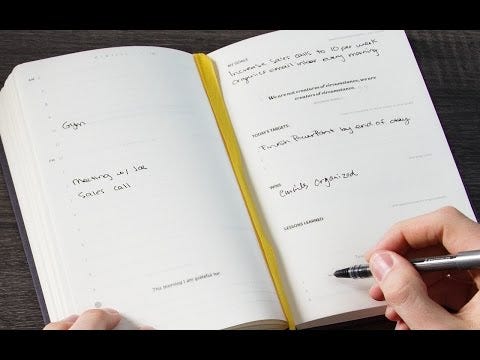 Gym
Meeting w/ Joe
Sales call
This morning I am grateful for:
MY GOALS
Increase sales calls to 10 per week
Organize email inbox every morning
We are not creatures of circumstance; we are
creators of circumstance.
TODAY'S TARGETS
Finish PowerPoint by end of day
WINS
Emails Organized
LESSONS LEARNED